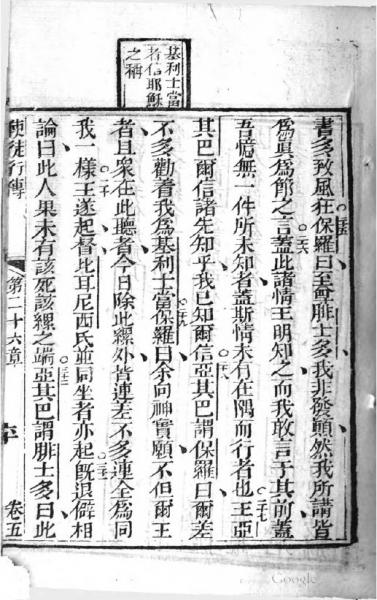 基利士當
者信耶穌
之稱
書多致風狂保羅曰至尊腓士多我非發顛然我所講皆
為真為節之言蓋此諸情王明知之而我敢言于其前蓋
吾憶無一件所未知者蓋斯情未有在隅而行者也王亞
其巴爾信諸先知乎我已知爾信亞其巴謂保羅曰爾差
不多勸着我為基利士當保羅曰余向神實願不但爾王
者且衆在此聽者今日除此縲外皆連差不多連全為同
我一樣王遂起督比耳尼西氏並同坐者亦起既退僻相
論曰此人果未有該死該縲之端亞其巴謂腓士多曰此
使徒行傳 第二十六章 卷五
Google